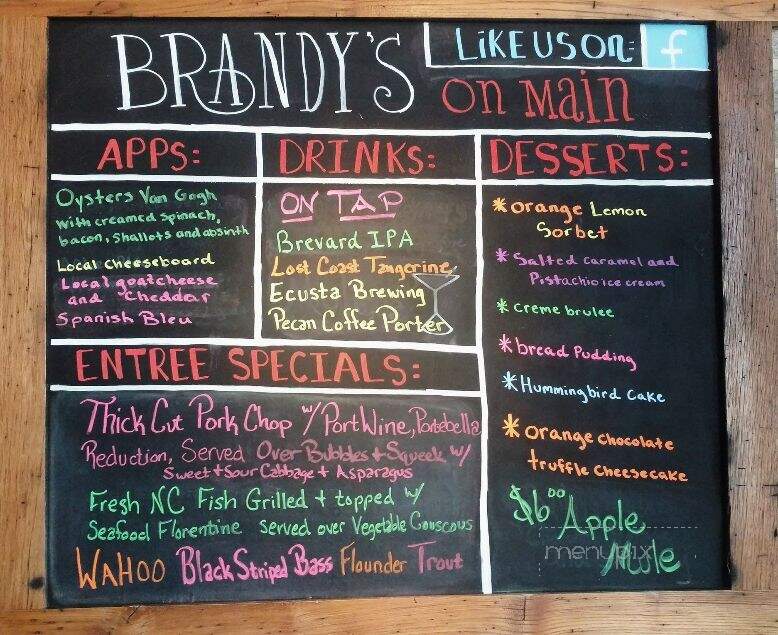 BRANDY'S
LIKE US ON: f
ON MAIN
APPS:
Oysters Van Gogh
with creamed spinach,
bacon, Shallots and absinth
Local cheeseboard
Local goatcheese
and cheddar
Spanish Bleu
DRINKS:
ON TAP
Brevard IPA
Lost Coast Tangerine
Ecusta Brewing
Pecan Coffee Porter
DESSERTS:
* Orange Lemon
Sorbet
* Salted caramel and
Pistachio ice cream
* creme brulee
* bread Pudding
* Hummingbird Cake
* Orange chocolate
truffle cheesecake
$6.00 Apple
Mule
menupix
ENTREE SPECIALS:
Thick Cut Pork Chop w/ Port Wine, Portebella
Reduction, Served Over Bubbles + Squeek w/
Sweet + Sour Cabbage + Asparagus
Fresh NC Fish Grilled + topped w/
Seafood Florentine served over Vegetable Couscous
WAHOO Black Striped Bass Flounder Trout